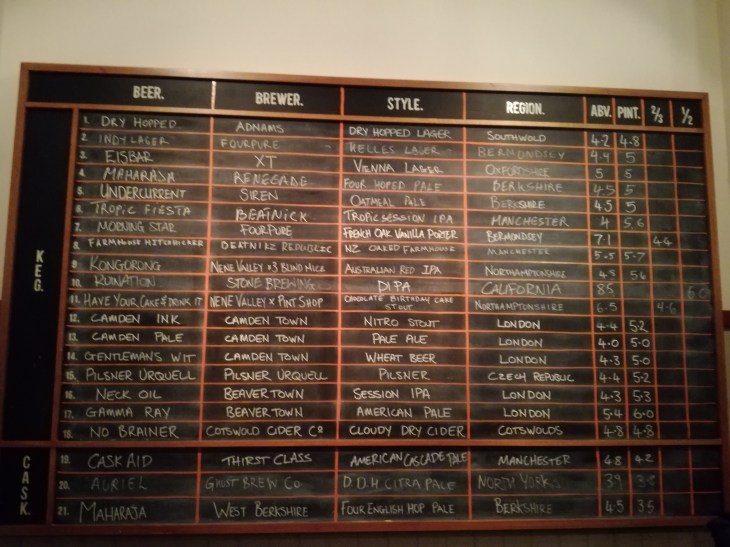 BEER. BREWER. STYLE. REGION. ABV. PINT. 2/3 1/2
KEG.
1. DRY HOPPED ADNAMS DRY HOPPED LAGER SOUTHWOLD 4.2 4.8
2. INDY LAGER FOURPURE HELLES LAGER BERMONDSEY 4.4 5
3. EISBAR XT VIENNA LAGER OXFORDSHIRE 5 5
4. MAHARAJA RENEGADE FOUR HOPED PALE BERKSHIRE 4.5 5
5. UNDERCURRENT SIREN OATMEAL PALE BERKSHIRE 4.5 5
6. TROPIC FIESTA BEATNICK TROPIC SESSION IPA MANCHESTER 4 5.6
7. MORNING STAR FOURPURE FRENCH OAK VANILLA PORTER BERMONDSEY 7.1 4.4
8. FARMHOUSE HITCHHICKER BEATNIKZ REPUBLIC NZ OAKED FARMHOUSE MANCHESTER 5.5 5.7
9. KONGORONG NENE VALLEY x 3 BLIND MICE AUSTRALIAN RED IPA NORTHAMPTONSHIRE 4.8 5.6
10. RUINATION STONE BREWING DIPA CALIFORNIA 8.5 6.0
11. HAVE YOUR CAKE & DRINK IT NENE VALLEY x PINT SHOP CHOCOLATE BIRTHDAY CAKE STOUT NORTHAMPTONSHIRE 6.5 4.6
12. CAMDEN INK CAMDEN TOWN NITRO STOUT LONDON 4.4 5.2
13. CAMDEN PALE CAMDEN TOWN PALE ALE LONDON 4.0 5.0
14. GENTLEMANS WIT CAMDEN TOWN WHEAT BEER LONDON 4.3 5.0
15. PILSNER URQUELL PILSNER URQUELL PILSNER CZECH REPUBLIC 4.4 5.2
16. NECK OIL BEAVERTOWN SESSION IPA LONDON 4.3 5.3
17. GAMMA RAY BEAVERTOWN AMERICAN PALE LONDON 5.4 6.0
18. NO BRAINER COTSWOLD CIDER Co CLOUDY DRY CIDER COTSWOLDS 4.8 4.8
CASK
19. CASK AID THIRST CLASS AMERICAN CASCADE PALE MANCHESTER 4.8 4.2
20. AURIEL GHOST BREW CO D.D.H CITRA PALE NORTH YORK. 3.9 3.8
21. MAHARAJA WEST BERKSHIRE FOUR ENGLISH HOP PALE BERKSHIRE 4.5 3.5